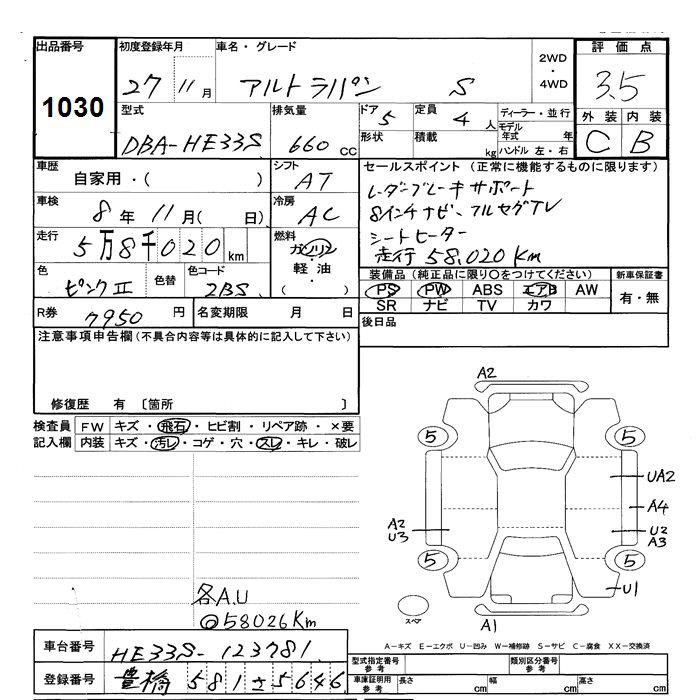 出品番号 初度登録年月 車名・グレード 2WD・4WD 評価点
1030 27 11月 アルトラパン S 3.5
型式 排気量 ドア 5 定員 4人 ディーラー・並行 外装 内装
DBA-HE33S 660 cc 形状 積載 kg モデル年式 年 ハンドル 左・右 C B
車歴 シフト セールスポイント (正常に機能するものに限ります)
自家用・( ) AT レーダーブレーキサポート
車検 冷房 8インチナビ・フルセグTV
8年11月( 日) AC シートヒーター
走行 燃料 走行58,020Km
5万8千020km ガソリン・軽油・( )
色 色替 色コード 装備品(純正品に限り○をつけてください) 新車保証書
ピンクII ZBS PS PW ABS エアB AW 有・無
SR ナビ TV カワ
R券 7950円 名変期限 月 日 後日品
注意事項申告欄(不具合内容等は具体的に記入して下さい)
修復歴 有 〔箇所 〕
検査員 FW キズ・飛石・ヒビ割・リペア跡・×要
記入欄 内装 キズ・汚レ・コゲ・穴・スレ・キレ・破レ
A2
5 5
UA2
A4
A2 U2
U3 A3
5 5
U1
スペア A1
各A.U
@58026Km
A-キズ E-エクボ U-凹み W-補修跡 S-サビ C-腐食 XX-交換済
車台番号 HE33S-123781 型式指定番号 参考 類別区分番号 参考
登録番号 豊橋 581 さ 5646 車庫証明用 参考 長さ cm 幅 cm 高さ cm